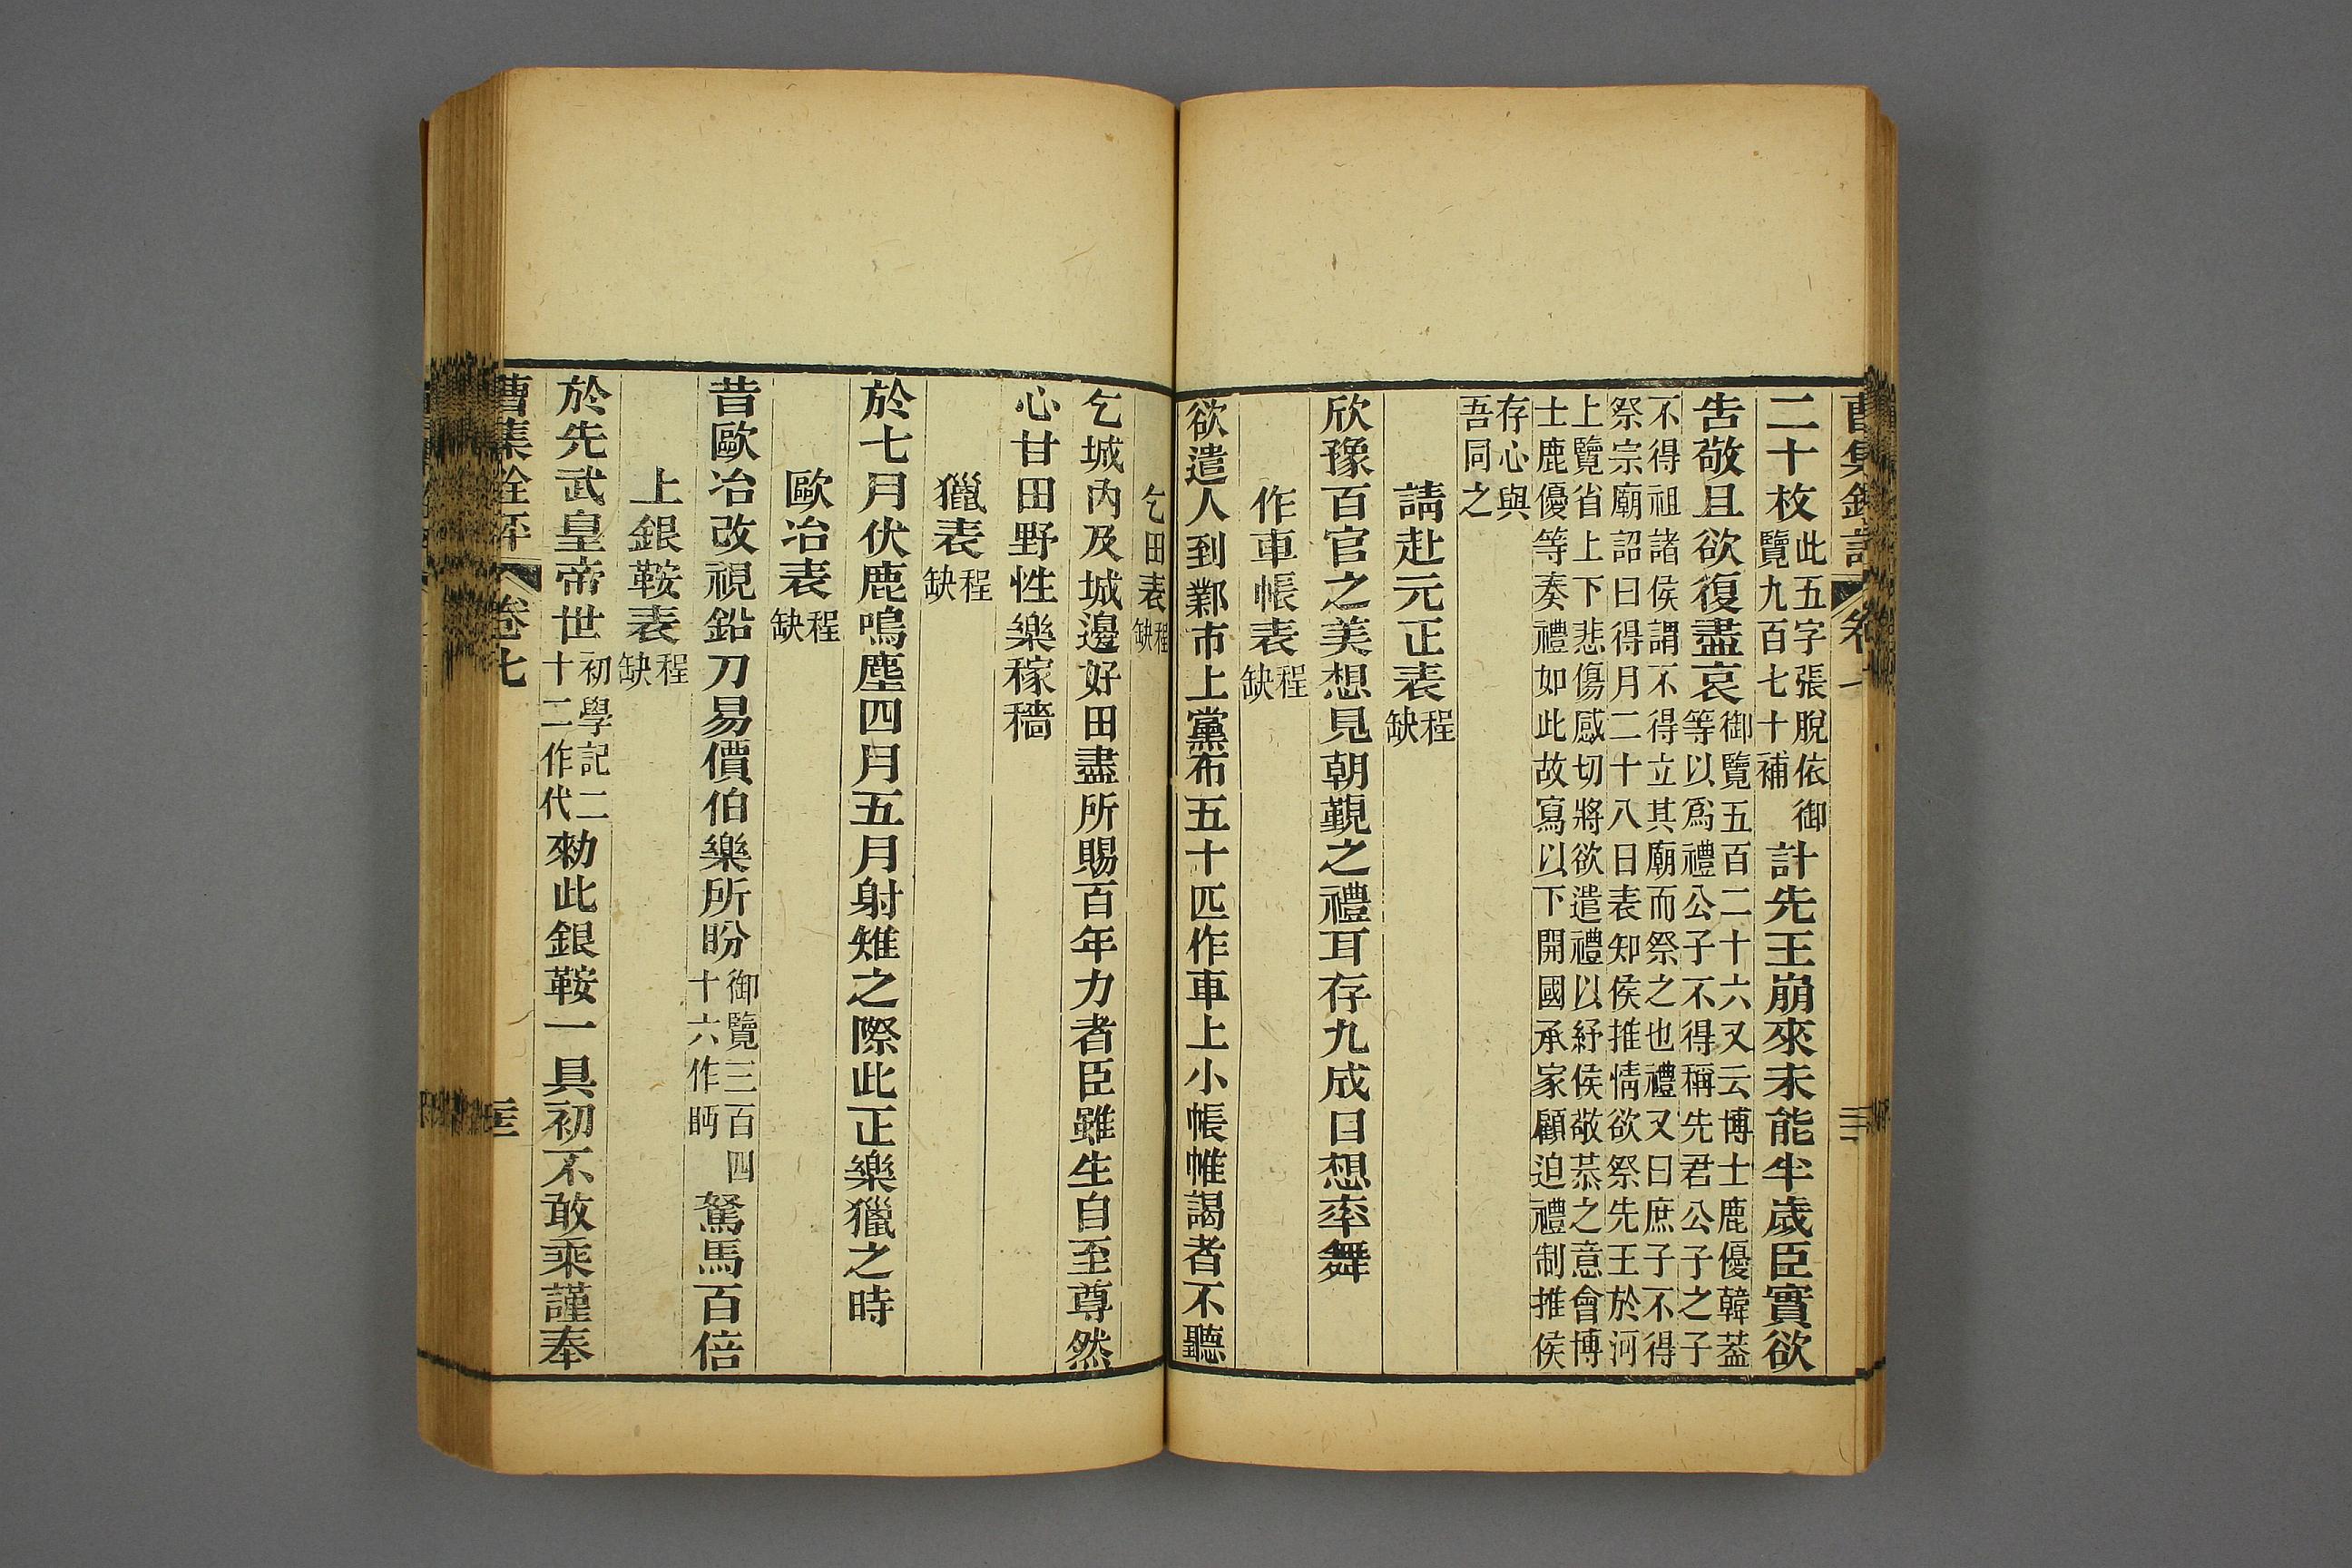 二十枚此五字張脫依御覽九百七十補計先王崩來未能半歲臣實欲
告敬且欲復盡哀御覽五百二十六又云博士鹿優韓葢等以爲禮公子不得稱先君公子之子
不得祖諸侯謂不得立其廟而祭之也禮又曰庶子不得祭宗廟詔曰得月二十八日表知侯推情欲祭先王於河
上覽省上下悲傷感切將欲遣禮以紓侯敬恭之意會博士鹿優等奏禮如此故寫以下開國承家顧迫禮制推侯
存心與吾同之
請赴元正表程缺
欣豫百官之美想見朝覲之禮耳存九成日想率舞
作車帳表程缺
欲遣人到鄴市上黨布五十匹作車上小帳帷謁者不聽
乞田表程缺
乞城內及城邊好田盡所賜百年力者臣雖生自至尊然
心甘田野性樂稼穡
獵表程缺
於七月伏鹿鳴塵四月五月射雉之際此正樂獵之時
歐冶表程缺
昔歐冶改視鉛刀易價伯樂所盼御覽三百四十六作眄駑馬百倍
上銀鞍表程缺
於先武皇帝世初學記二十二作代勑此銀鞍一具初不敢乘謹奉
曹集銓評 卷七